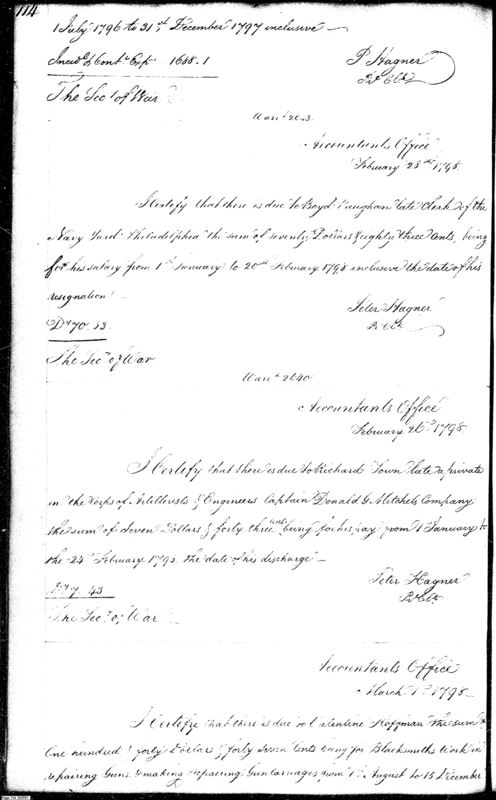 114
1 July 1796 to 31st December 1797 inclusive
Incid & Cont Exp 1688.1
P Hagner
Pl Clk
The Secy of War
Warrt
Accountants Office
February 28th 1798
I Certify that there is due to Boyd Vaughan late Clerk of the
Navy Yard Philadelphia the sum of seventy Dollars & eighty three Cents, being
for his salary from 1st January to 20th February 1798 inclusive the date of his
resignation
Peter Hagner
Pl Clk
The Secy of War
Warrt 2640
Accountants Office
February 26th 1798
I Certify that there is due to Richard Town late a private
in the Corps of Artillerists & Engineers Captain Donald G Mitchels Company
the sum of seven Dollars & forty three Cents being for his pay from 1 January to
the 24th February 1798 the date of his discharge
Peter Hagner
Pl Clk
7.43
The Secy of War
Accountants Office
March 1st 1798
I Certify that there is due to Valentine Hoffman the sum of
One hundred & forty Dollars & forty seven Cents being for Blacksmiths Work in
repairing Guns & making & repairing Gun Carriages, from 1st August to 15 December